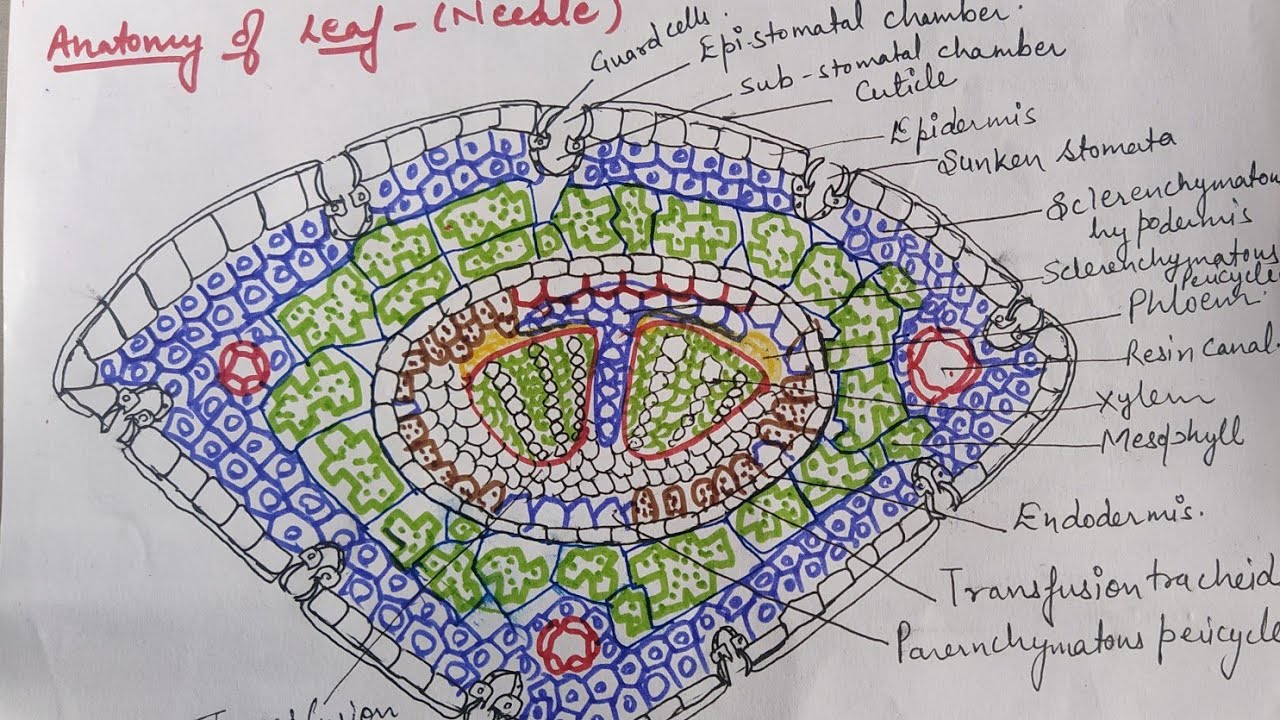 Anatomy of Leaf - (Needle)
Guard cells.
Epi-stomatal chamber.
Sub-stomatal chamber
Cuticle
Epidermis
Sunken stomata
Sclerenchymatou
hypodermis
Sclerenchymatous
Pericycle
Phloem.
Resin canal.
Xylem
Mesophyll
Endodermis.
Transfusion tracheid
Parernchymatous pericycle
Transfusion